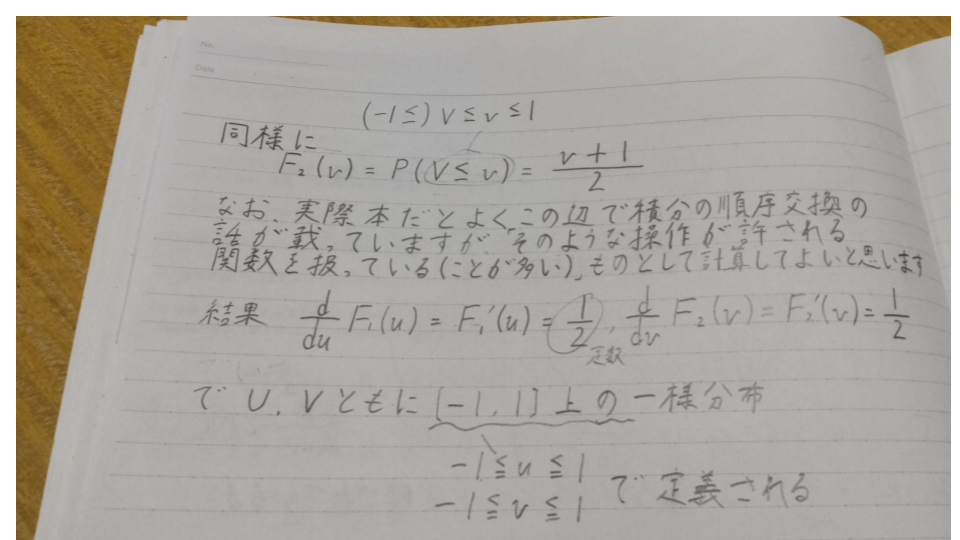 No.
Date
(-1≦) V ≦ v ≦ 1
同様に
F₂(v) = P(V ≦ v) = (v + 1)/2
なお、実際本だとよくこの辺で積分の順序交換の
話が載っていますが、そのような操作が許される
関数を扱っている(ことが多い)ものとして計算してよいと思います
結果 d/du F₁(u) = F₁'(u) = 1/2, d/dv F₂(v) = F₂'(v) = 1/2
定数
で U, V ともに [-1, 1] 上の一様分布
-1 ≦ u ≦ 1
-1 ≦ v ≦ 1 で定義される